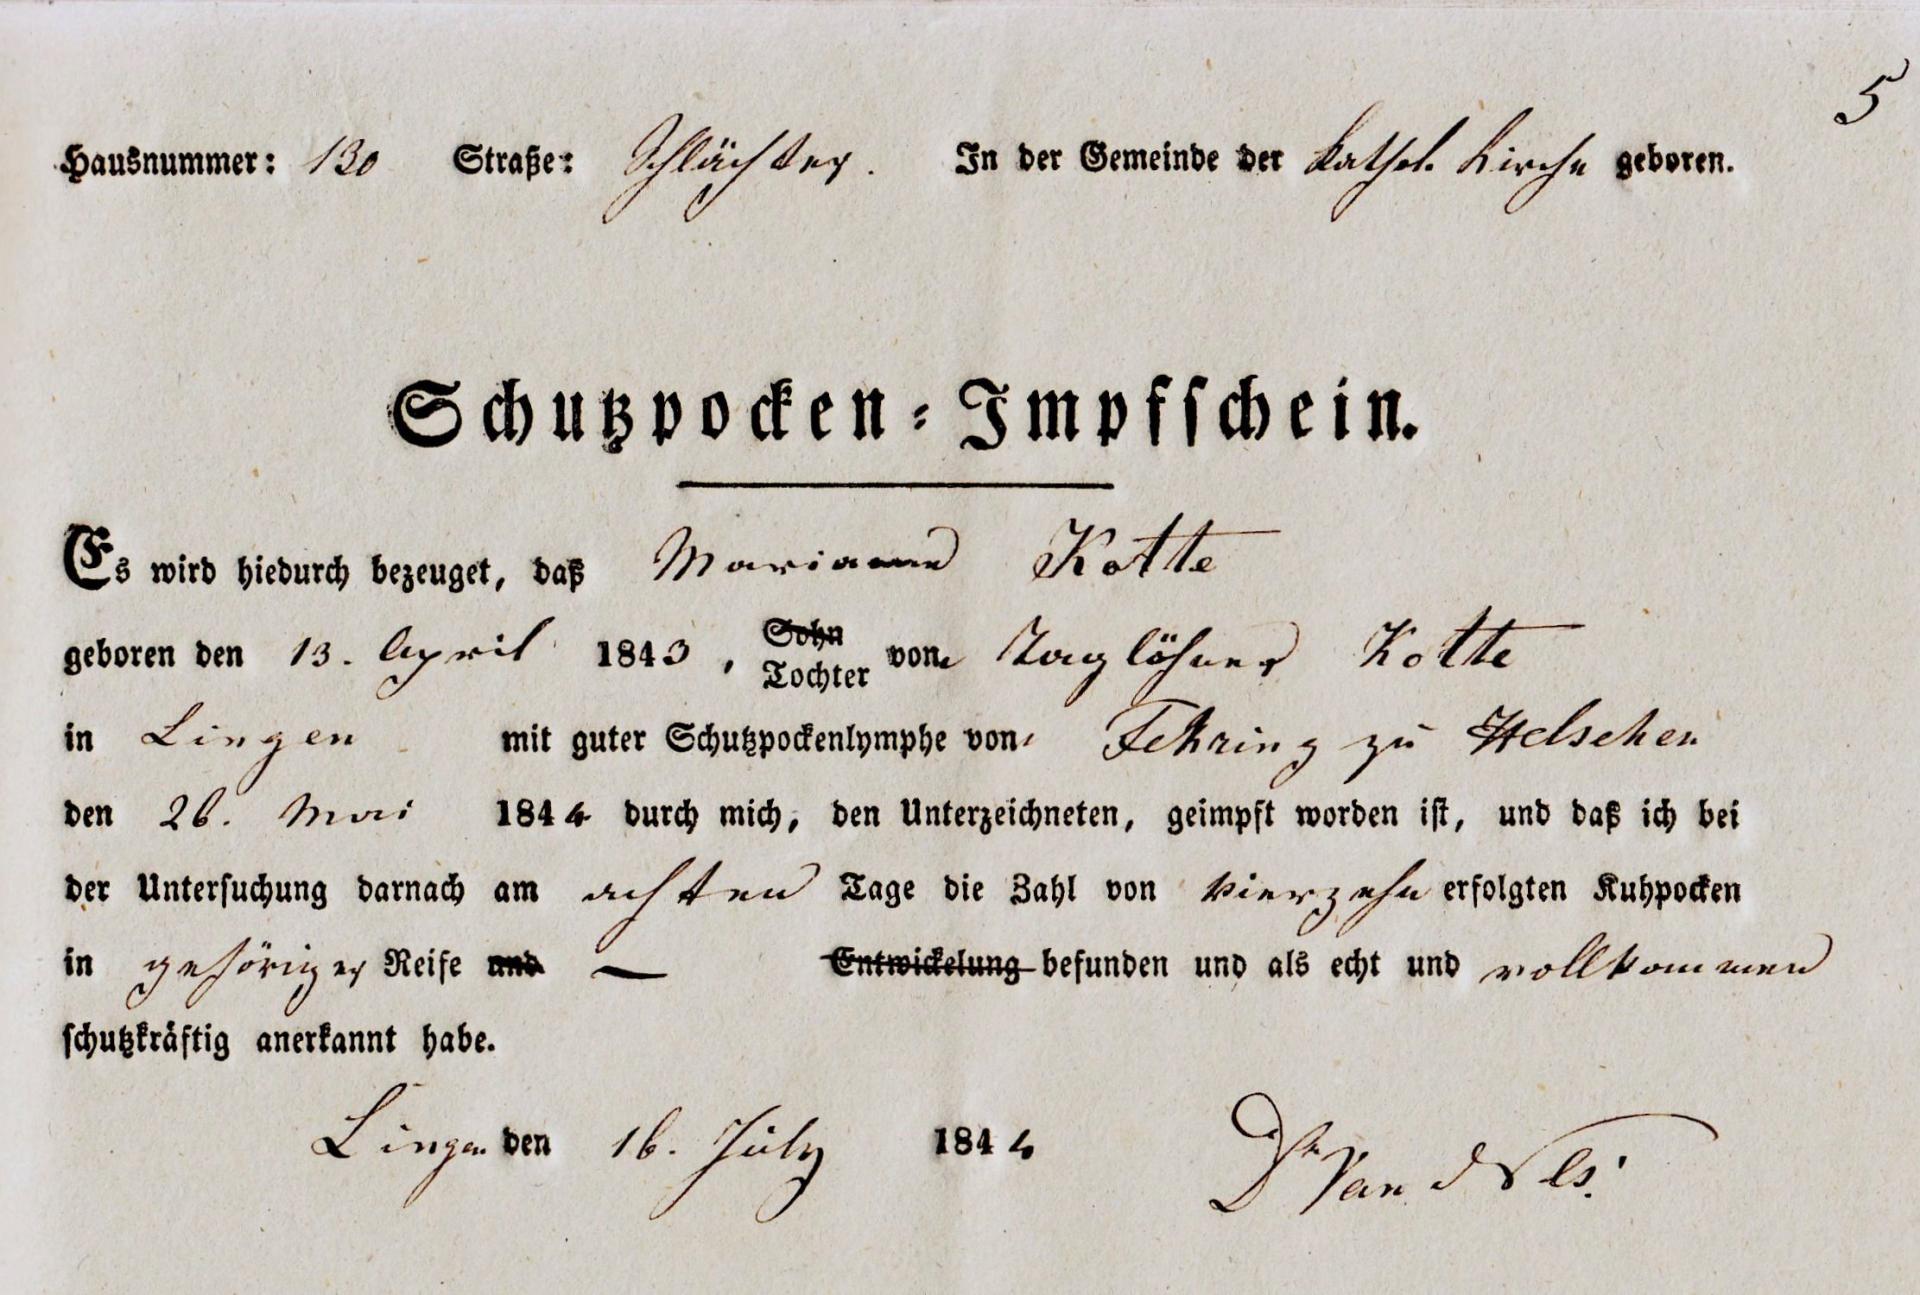 5
Hausnummer: 130 Straße: Schlächter. In der Gemeinde der kathol. Kirche geboren.
Schutzpocken-Impfschein.
Es wird hiedurch bezeuget, daß Marianne Kotte
geboren den 13. April 1843, Sohn Tochter von Taglöhner Kotte
in Lingen mit guter Schutzpockenlymphe von Fehring zu Helschen
den 26. Mai 1844 durch mich, den Unterzeichneten, geimpft worden ist, und daß ich bei
der Untersuchung darnach am achten Tage die Zahl von vierzehn erfolgten Kuhpocken
in gehöriger Reife und — Entwickelung befunden und als echt und vollkommen
schutzkräftig anerkannt habe.
Lingen den 16. July 1844 Dr Van